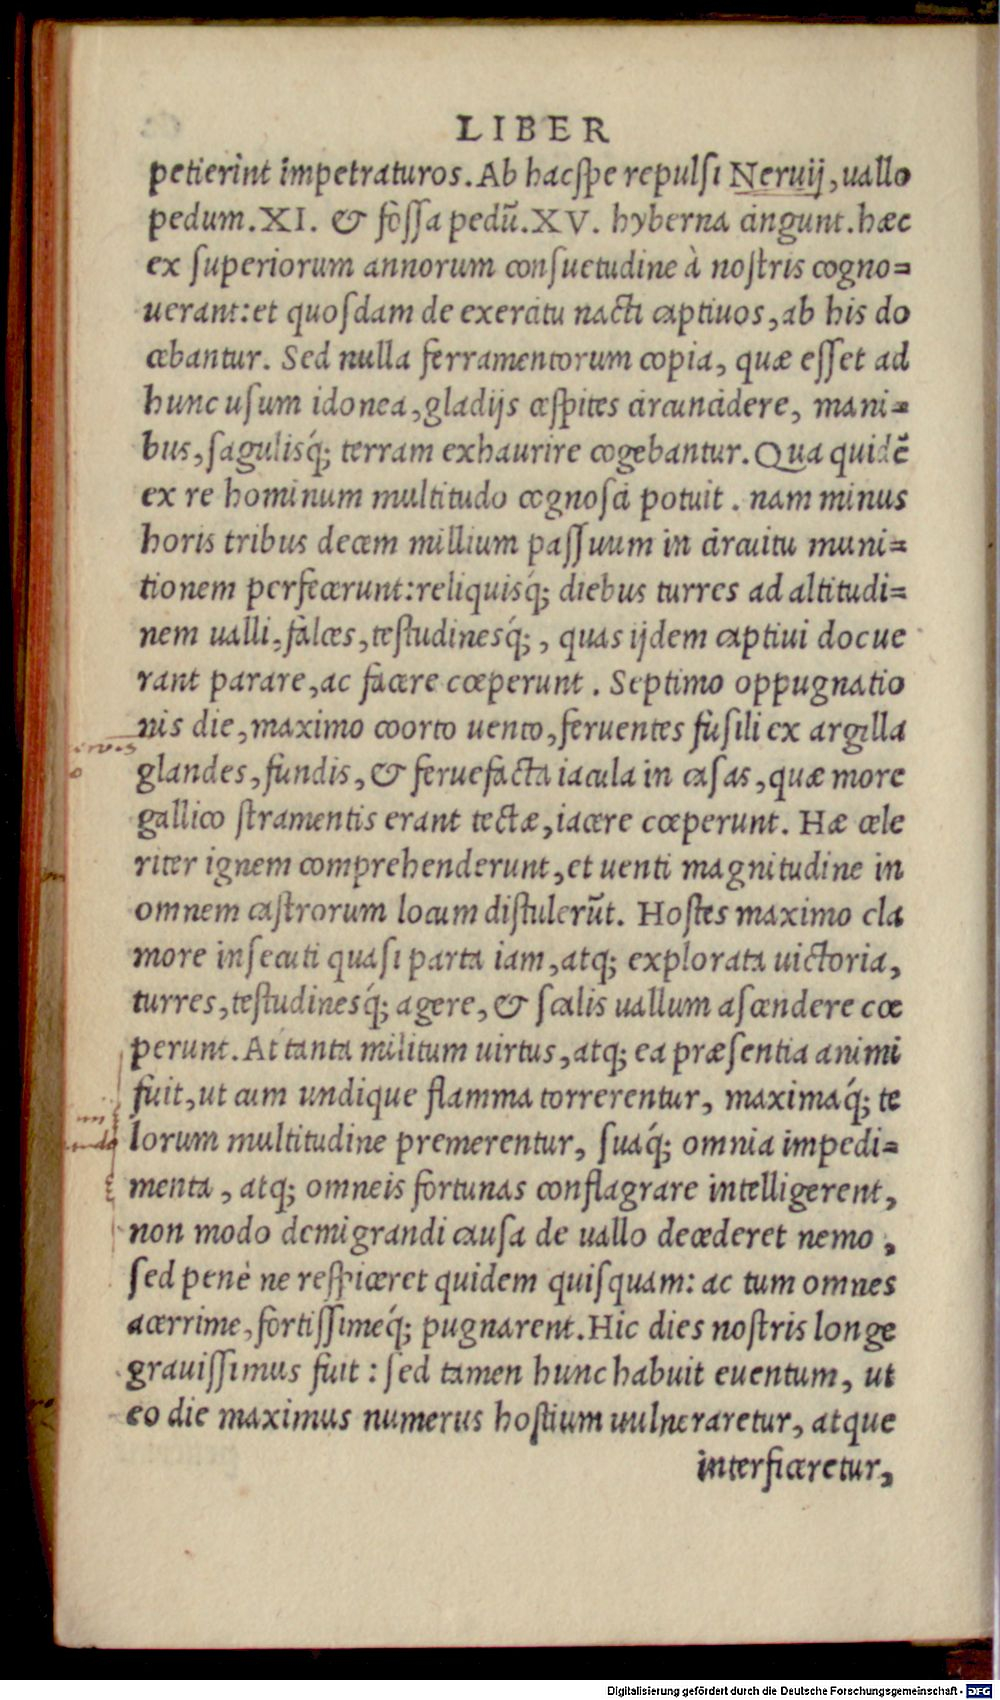 LIBER
petierint impetraturos. Ab hac spe repulsi Neruij, uallo
pedum. XI. & fossa pedũ. XV. hyberna cingunt. hæc
ex superiorum annorum consuetudine à nostris cogno=
uerant: et quosdam de exercitu nacti captiuos, ab his do
cebantur. Sed nulla ferramentorum copia, quæ esset ad
hunc usum idonea, gladijs cespites circuncidere, mani=
bus, sagulisq́; terram exhaurire cogebantur. Qua quidẽ
ex re hominum multitudo cognosci potuit. nam minus
horis tribus decem millium passuum in circuitu muni=
tionem perfecerunt: reliquisq́; diebus turres ad altitudi=
nem ualli, falces, testudinesq́;, quas ijdem captiui docue
rant parare, ac facere cœperunt. Septimo oppugnatio
nis die, maximo coorto uento, feruentes fusili ex argilla
glandes, fundis, & feruefacta iacula in casas, quæ more
gallico stramentis erant tectæ, iacere cœperunt. Hæ cele
riter ignem comprehenderunt, et uenti magnitudine in
omnem castrorum locum distulerũt. Hostes maximo cla
more insecuti quasi parta iam, atq; explorata uictoria,
turres, testudinesq́; agere, & scalis uallum ascendere cœ
perunt. At tanta militum uirtus, atq; ea præsentia animi
fuit, ut cum undique flamma torrerentur, maximaq́; te
lorum multitudine premerentur, suaq́; omnia impedi=
menta, atq; omneis fortunas conflagrare intelligerent,
non modo demigrandi causa de uallo decederet nemo,
sed penè ne respiceret quidem quisquam: ac tum omnes
acerrime, fortissimeq́; pugnarent. Hic dies nostris longe
grauissimus fuit: sed tamen hunc habuit euentum, ut
eo die maximus numerus hostium uulneraretur, atque
interficeretur,
Digitalisierung gefördert durch die Deutsche Forschungsgemeinschaft - DFG